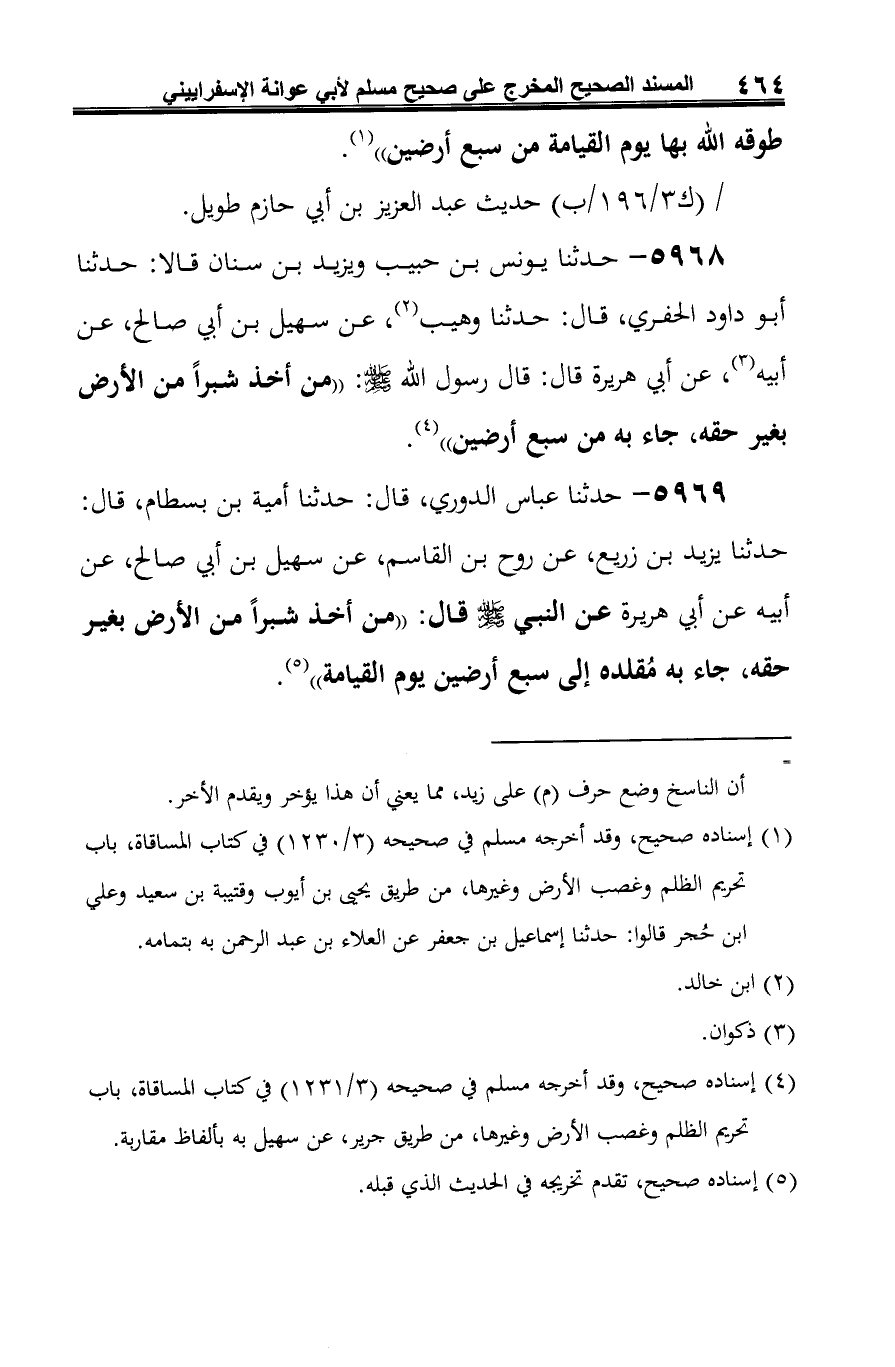 ٤٦٤ المسند الصحيح المخرج على صحيح مسلم لأبي عوانة الإسفراييني
طوقه الله بها يوم القيامة من سبع أرضين»(١).
/ (ك١٩٦/٣/ب) حديث عبد العزيز بن أبي حازم طويل.
٥٩٦٨- حدثنا يونس بن حبيب ويزيد بن سنان قالا: حدثنا
أبو داود الحفري، قال: حدثنا وهيب(٢)، عن سهيل بن أبي صالح، عن
أبيه(٣)، عن أبي هريرة قال: قال رسول الله ﷺ: «من أخذ شبراً من الأرض
بغير حقه، جاء به من سبع أرضين»(٤).
٥٩٦٩- حدثنا عباس الدوري، قال: حدثنا أمية بن بسطام، قال:
حدثنا يزيد بن زريع، عن روح بن القاسم، عن سهيل بن أبي صالح، عن
أبيه عن أبي هريرة عن النبي ﷺ قال: «من أخذ شبراً من الأرض بغير
حقه، جاء به مُقلده إلى سبع أرضين يوم القيامة»(٥).
=
أن الناسخ وضع حرف (م) على زيد، مما يعني أن هذا يؤخر ويقدم الأخر.
(١) إسناده صحيح، وقد أخرجه مسلم في صحيحه (١٢٣٠/٣) في كتاب المساقاة، باب
تحريم الظلم وغصب الأرض وغيرها، من طريق يحيى بن أيوب وقتيبة بن سعيد وعلي
ابن حُجر قالوا: حدثنا إسماعيل بن جعفر عن العلاء بن عبد الرحمن به بتمامه.
(٢) ابن خالد.
(٣) ذكوان.
(٤) إسناده صحيح، وقد أخرجه مسلم في صحيحه (١٢٣١/٣) في كتاب المساقاة، باب
تحريم الظلم وغصب الأرض وغيرها، من طريق جرير، عن سهيل به بألفاظ مقاربة.
(٥) إسناده صحيح، تقدم تخريجه في الحديث الذي قبله.